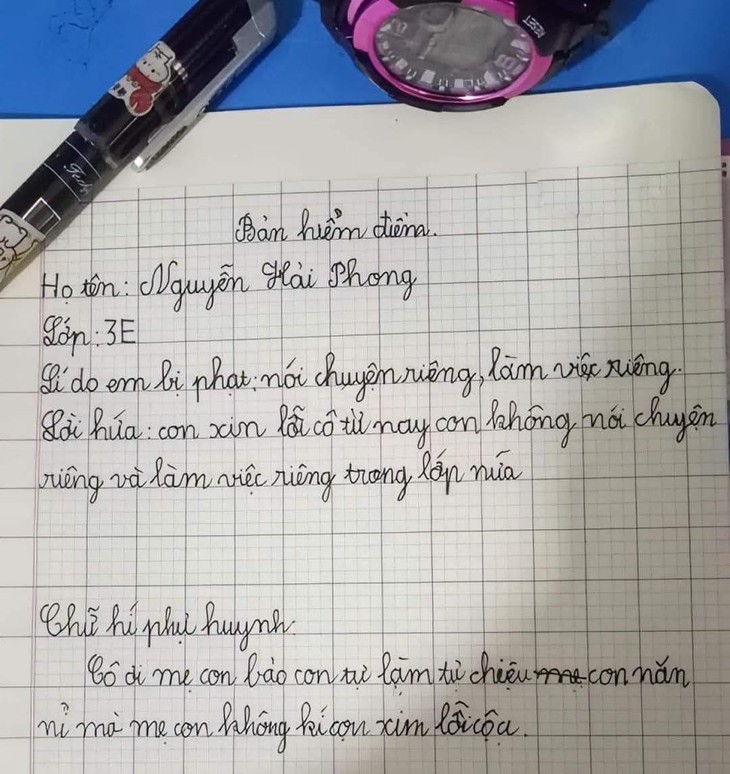 RESET
Tech
Bản hiểm điểm.
Họ tên: Nguyễn Hải Phong
Lớp: 3E
Lí do em bị phạt: nói chuyện riêng, làm việc riêng.
Lời hứa: con xin lỗi cô từ nay con không nói chuyện
riêng và làm việc riêng trong lớp nữa
Chữ kí phụ huynh:
Cô ơi mẹ con bảo con tự làm tự chịu mẹ con năn
nỉ mà mẹ con không kí con xin lỗi cô ạ.